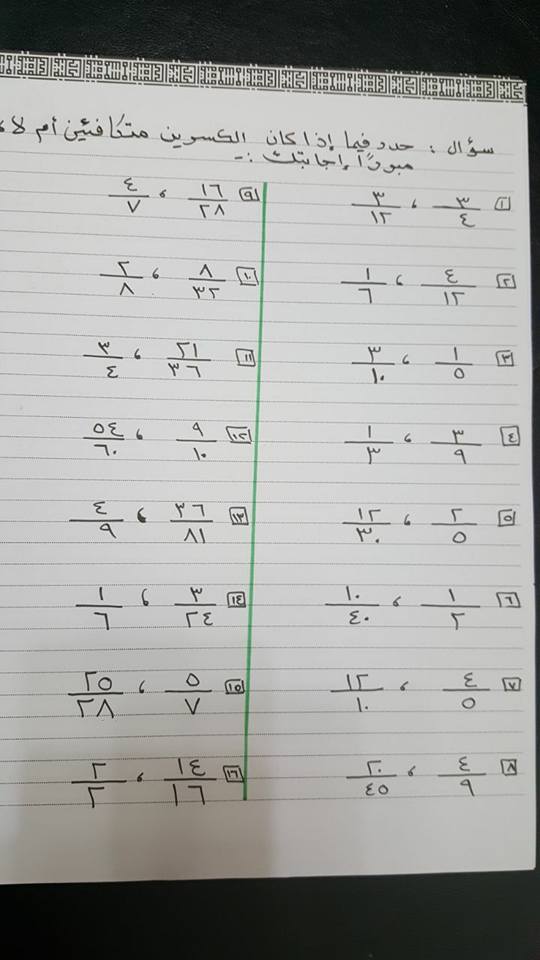 سؤال : حدد فيما إذا كان الكسرين متكافئين أم لا ،
مبررًا إجابتك :-
١ ٣/٤ ، ٣/١٢
٢ ٤/١٢ ، ١/٦
٣ ١/٥ ، ٣/١٠
٤ ٣/٩ ، ١/٣
٥ ٢/٥ ، ١٢/٣٠
٦ ١/٢ ، ١٠/٤٠
٧ ٤/٥ ، ١٢/١٠
٨ ٤/٩ ، ٢٠/٤٥
٩ ١٦/٢٨ ، ٤/٧
١٠ ٨/٣٢ ، ٢/٨
١١ ٢١/٣٦ ، ٣/٤
١٢ ٩/١٠ ، ٥٤/٦٠
١٣ ٣٦/٨١ ، ٤/٩
١٤ ٣/٢٤ ، ١/٦
١٥ ٥/٧ ، ٢٥/٢٨
١٦ ١٤/١٦ ، ٢/٢